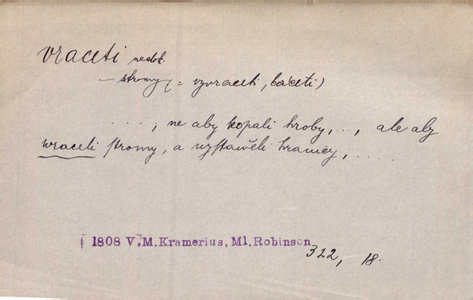 vraceti nedok.
— stromy (= vyvraceti, káceti)
....., ne aby kopali hroby, ..., ale aby
wraceli stromy, a wystawěli hranicy, .....
1808 V. M. Kramerius, Ml. Robinson 322, 18.